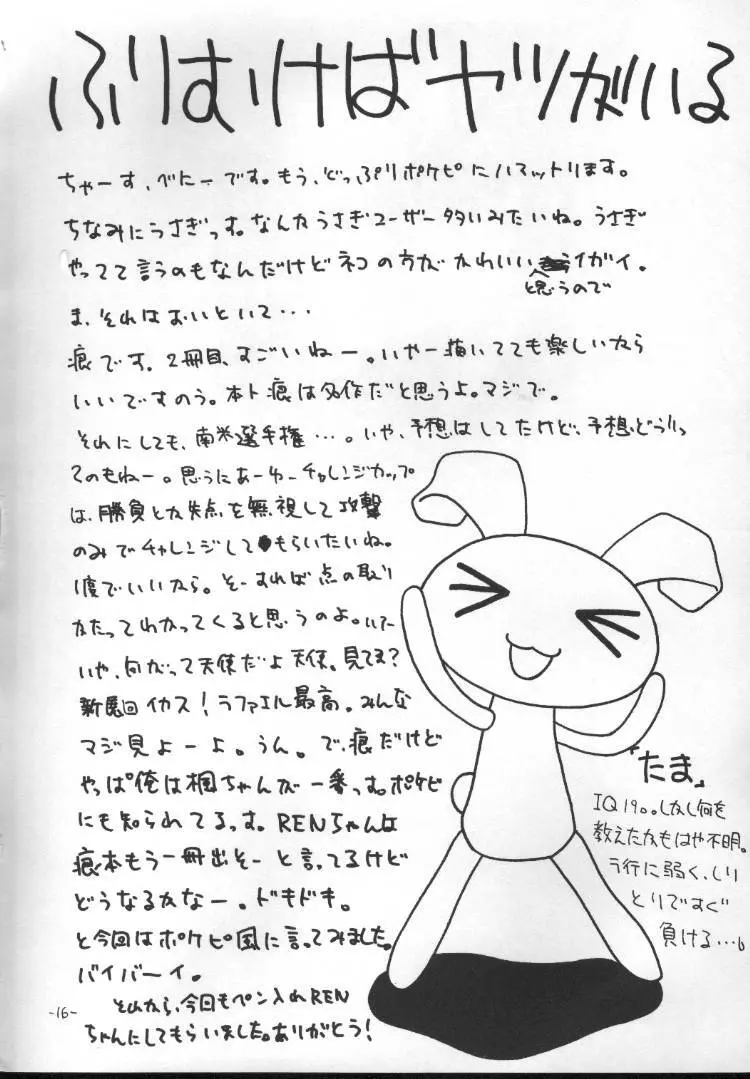 ふりむけばヤツがいる
ちゃーす、べにーです。もう、どっぷりポケピにハマットリます。
ちなみにうさぎっす。なんかうさぎユーザー多いみたいね。うさぎ
やってて言うのもなんだけどネコの方がかわいい イガイ。
と思うので
ま、それはおいといて・・・
痕です。2冊目、すごいねー。いやー描いてても楽しいから
いいですのう。本ト痕は名作だと思うよ。マジで。
それにしても、南米選手権・・・。いや、予想はしてたけど、予想どうりっ
てのもねー。思うにあーゆーチャレンジカップ
は、勝負とか失点を無視して攻撃
のみでチャレンジしてもらいたいね。
1度でいいから。そーすれば点の取り
かたってわかってくると思うのよ。
いや、向かって天使だよ天使。見てます?
新魔回イカス!ラファエル最高。みんな
マジ見よーよ。うん。で、痕だけど
やっぱ俺は楓ちゃんが一番っす。ポケピ
にも知られてるっす。RENちゃんは
痕本もう一冊出そーと言ってるけど
どうなるかなー。ドキドキ。
と今回はポケピ風に言ってみました。
バイバーイ。
それから、今回もペン入れREN
ちゃんにしてもらいました。ありがとう!
「たま」
IQ190。しかし何を
教えたかもはや不明。
ラ行に弱く、しり
とりですぐ
負ける…。
-16-